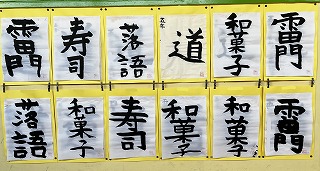 雷門
寿司
落語
道
和菓子
雷門
落語
和菓子
寿司
和菓子
和菓子
雷門